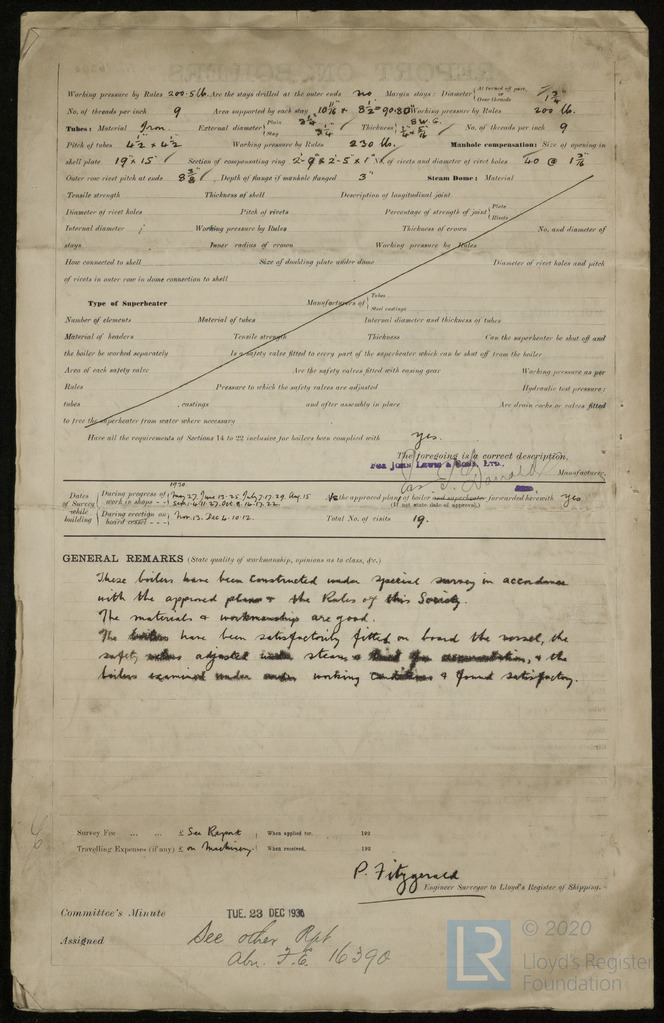 Working pressure by Rules 200.5 lb. Are the stays drilled at the outer ends no Margin stays: Diameter { At turned off part, or Over threads 1 3/4"
No. of threads per inch 9 Area supported by each stay 10 11/16" × 8 1/2" = 90.80" Working pressure by Rules 200 lb.
Tubes: Material Iron. External diameter { Plain 3 1/4" Stay 3 1/4" Thickness { 8 W.G. 1/4" & 5/16" No. of threads per inch 9
Pitch of tubes 4 1/2 × 4 1/2 Working pressure by Rules 230 lb. Manhole compensation: Size of opening in
shell plate 19" × 15" Section of compensating ring 2'-9" × 2'-5" × 1" No. of rivets and diameter of rivet holes 40 @ 1 3/16"
Outer row rivet pitch at ends 8 3/8" Depth of flange if manhole flanged 3" Steam Dome: Material
Tensile strength Thickness of shell Description of longitudinal joint
Diameter of rivet holes Pitch of rivets Percentage of strength of joint { Plate Rivets
Internal diameter Working pressure by Rules Thickness of crown No. and diameter of
stays Inner radius of crown Working pressure by Rules
How connected to shell Size of doubling plate under dome Diameter of rivet holes and pitch
of rivets in outer row in dome connection to shell
Type of Superheater Manufacturers of { Tubes Steel castings
Number of elements Material of tubes Internal diameter and thickness of tubes
Material of headers Tensile strength Thickness Can the superheater be shut off and
the boiler be worked separately Is a safety valve fitted to every part of the superheater which can be shut off from the boiler
Area of each safety valve Are the safety valves fitted with easing gear Working pressure as per
Rules Pressure to which the safety valves are adjusted Hydraulic test pressure:
tubes , castings and after assembly in place Are drain cocks or valves fitted
to free the superheater from water where necessary
Have all the requirements of Sections 14 to 22 inclusive for boilers been complied with yes.
The foregoing is a correct description,
FOR JOHN LEWIS & SONS, LTD.
Manufacturer.
1930
Dates of Survey while building { During progress of work in shops - - May 27. June 13. 25. July 7. 17. 29. Aug. 15 Sept. 1. 4. 11. 27. Oct. 8. 14. 17. 22.
the approved plans of boiler and superheater forwarded herewith yes
(If not state date of approval.)
During erection on board vessel - - - Nov. 13. Dec. 4. 10. 12. Total No. of visits 19.
GENERAL REMARKS (State quality of workmanship, opinions as to class, &c.)
These boilers have been constructed under special survey in accordance
with the approved plans & the Rules of this Society.
The materials & workmanship are good.
The boilers have been satisfactorily fitted on board the vessel, the
safety valves adjusted under steam & tried for accumulation, & the
boilers examined under working conditions & found satisfactory.
Survey Fee ... ... £ See Report When applied for, 192
Travelling Expenses (if any) £ on Machinery. When received, 192
P. Fitzgerald
Engineer Surveyor to Lloyd's Register of Shipping.
Committee's Minute TUE. 23 DEC 1930
Assigned See other Rpt
Abn. F.E. 16390
LR © 2020
Lloyd's Register
Foundation